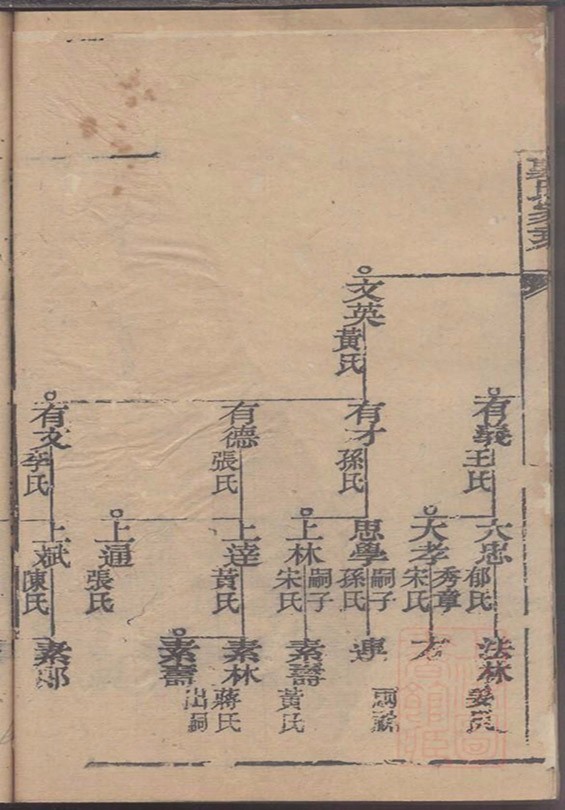 文英
黃氏
有義
王氏
有才
孫氏
有德
張氏
有文
李氏
六忠
郁氏
大孝
秀章
宋氏
思學
嗣子
孫氏
上林
嗣子
宋氏
上達
黃氏
上通
張氏
上斌
陳氏
法林
姜氏
方
連
素壽
黃氏
素林
蔣氏
素壽
出嗣